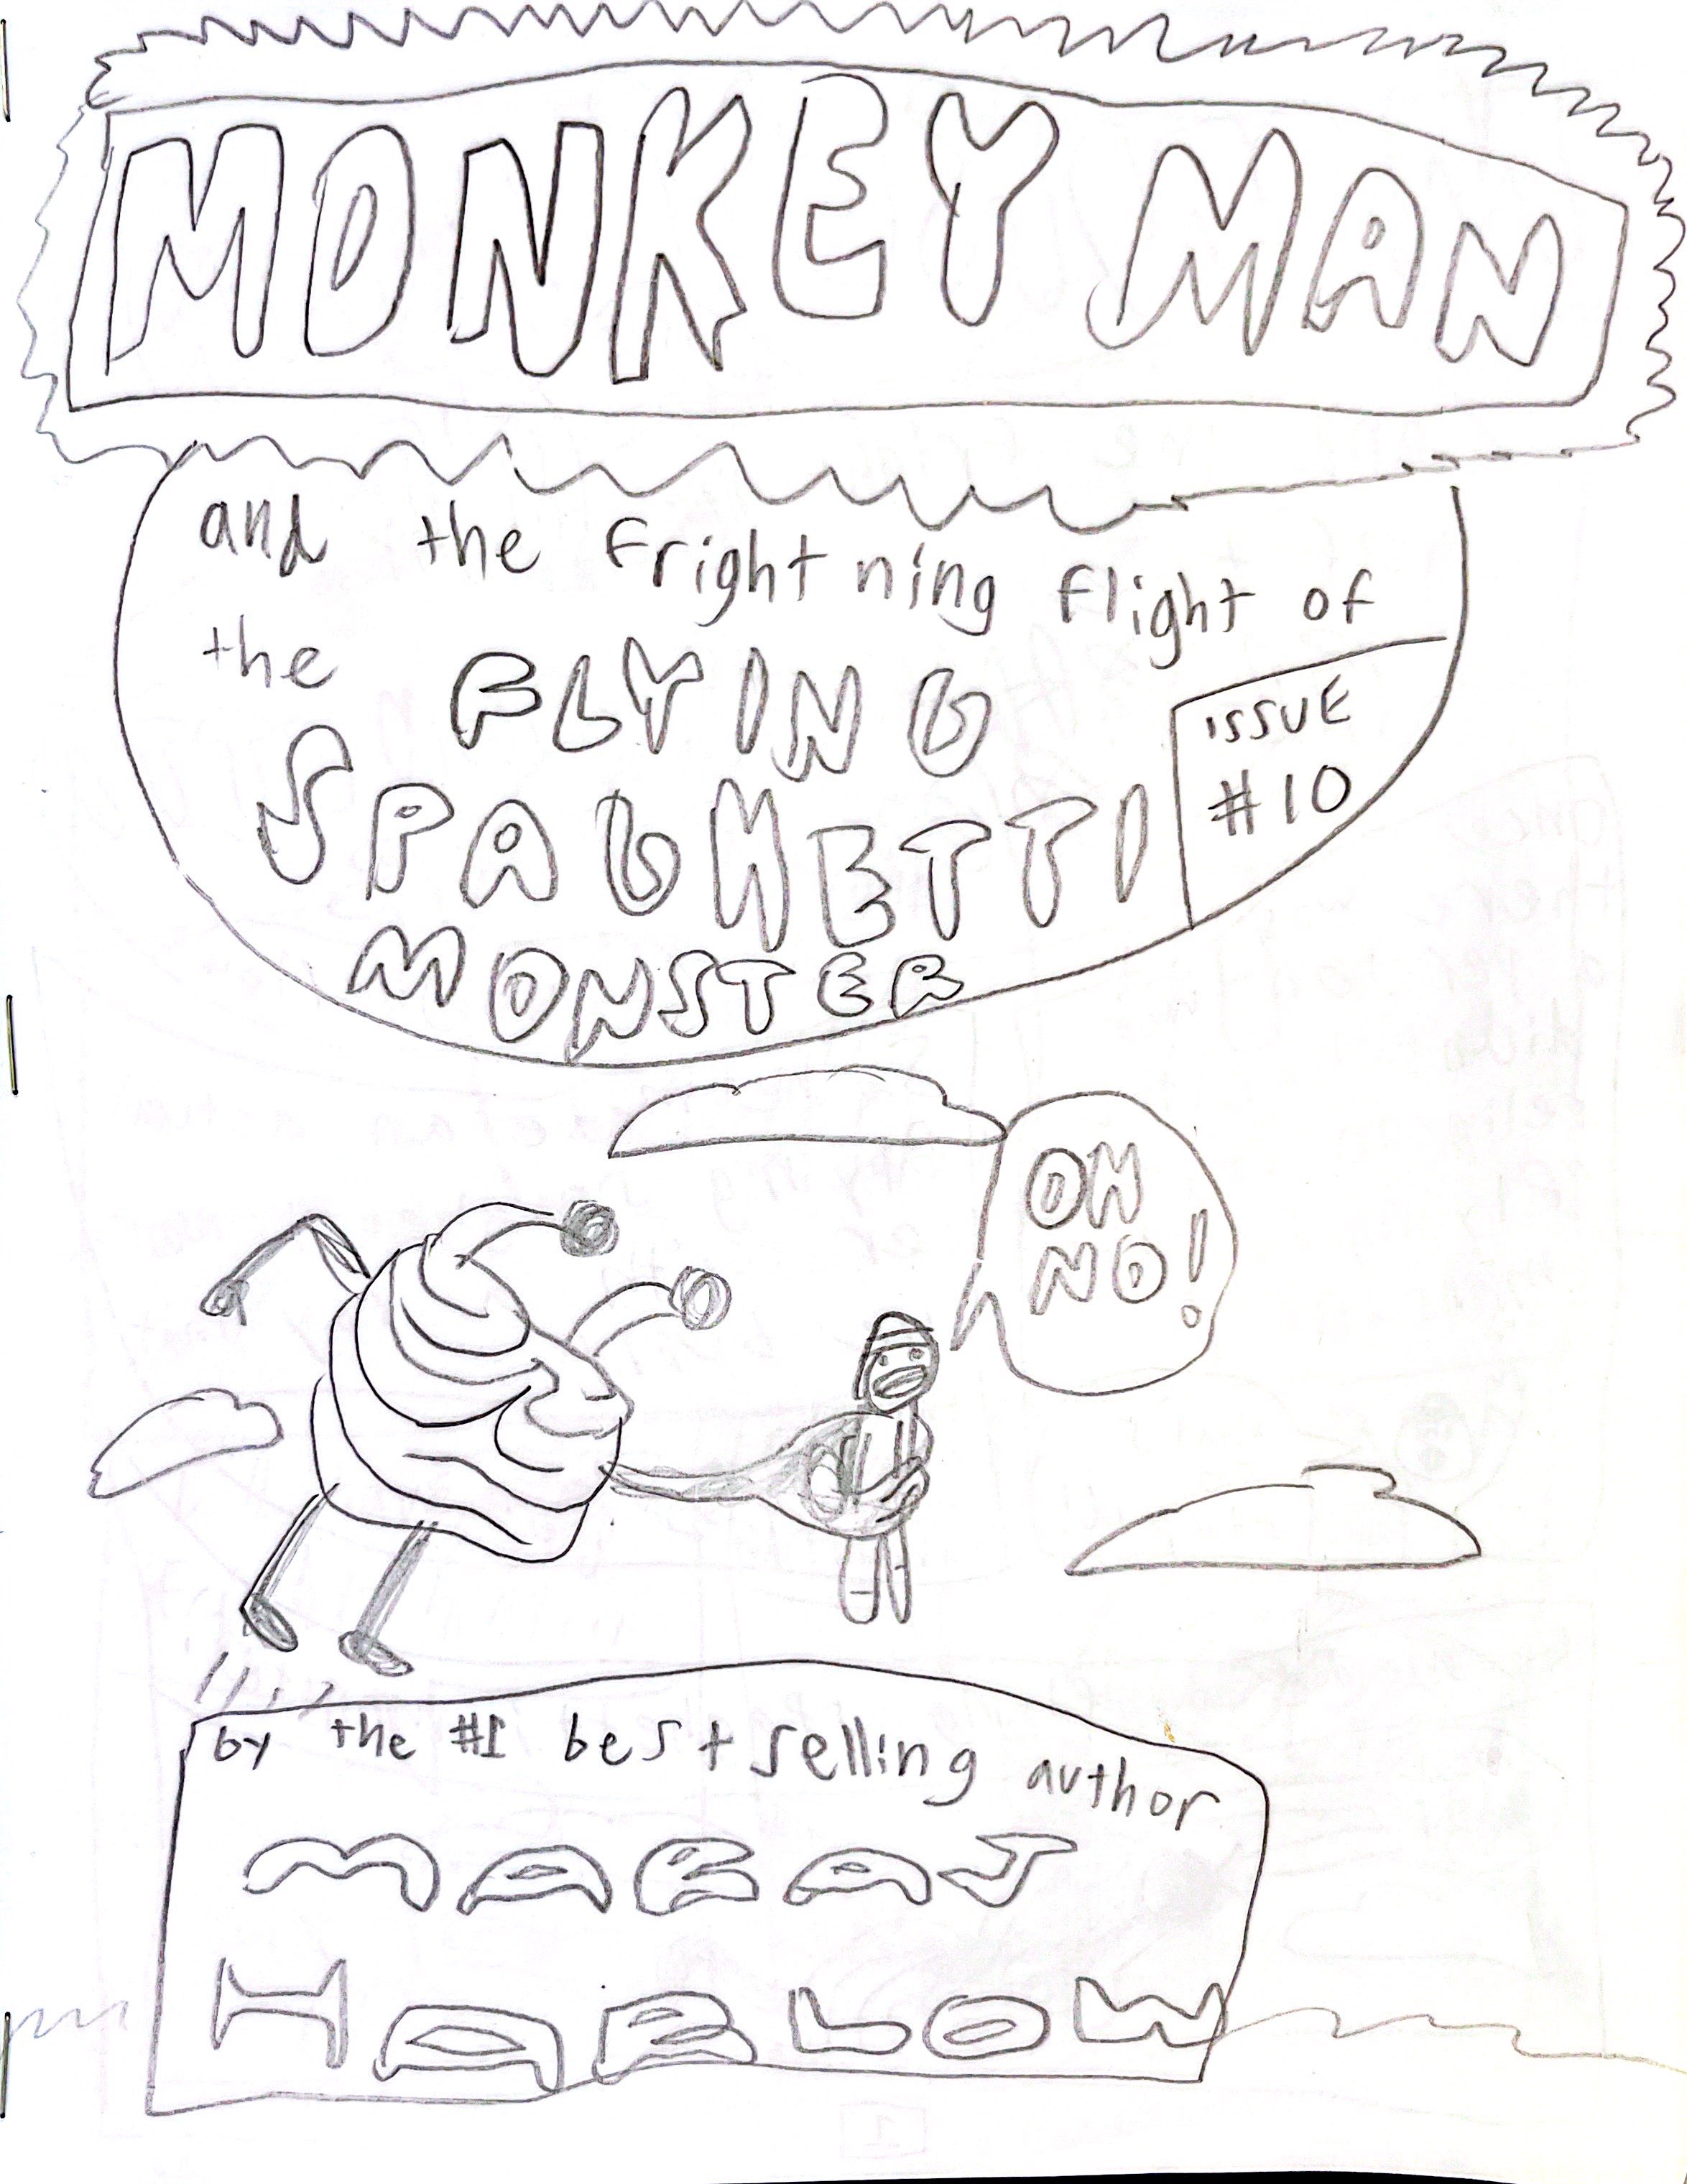 MONKEY MAN
and the frightning flight of
the FLYING
SPAGHETTI
MONSTER
ISSUE
#10
OH
NO!
by the #1 best selling author
HARLOW